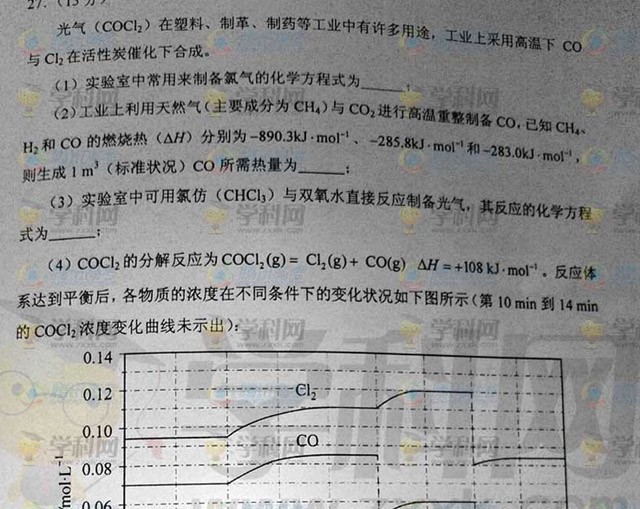 27.(15分)
光气（COCl₂）在塑料、制革、制药等工业中有许多用途，工业上采用高温下 CO
与 Cl₂ 在活性炭催化下合成。
(1) 实验室中常用来制备氯气的化学方程式为______;
(2) 工业上利用天然气（主要成分为 CH₄）与 CO₂ 进行高温重整制备 CO, 已知 CH₄、
H₂ 和 CO 的燃烧热（ΔH）分别为 −890.3kJ·mol⁻¹、−285.8kJ·mol⁻¹ 和 −283.0kJ·mol⁻¹,
则生成 1 m³（标准状况）CO 所需热量为______;
(3) 实验室中可用氯仿（CHCl₃）与双氧水直接反应制备光气，其反应的化学方程
式为______;
(4) COCl₂ 的分解反应为 COCl₂(g) = Cl₂(g) + CO(g) ΔH = +108 kJ·mol⁻¹。反应体
系达到平衡后，各物质的浓度在不同条件下的变化状况如下图所示（第 10 min 到 14 min
的 COCl₂ 浓度变化曲线未示出）:
0.14
0.12
Cl₂
0.10
CO
0.08
0.06
mol·L⁻¹
学科网